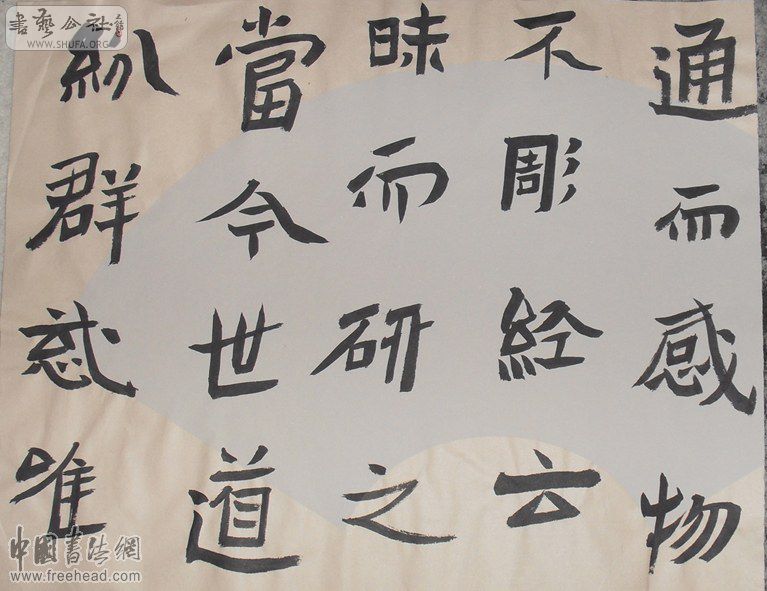 書藝公社
WWW.SHUFA.ORG
通而感物
不彫経云
昧而研之
當今世道
群唯
中國書法網
www.freehead.com